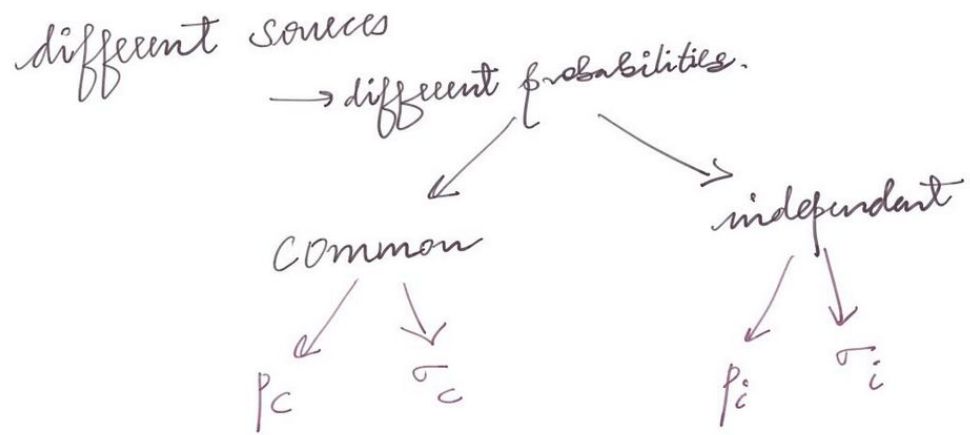 different sources
→ different probabilities.
common
independent
p_c
σ_c
p_i
σ_i